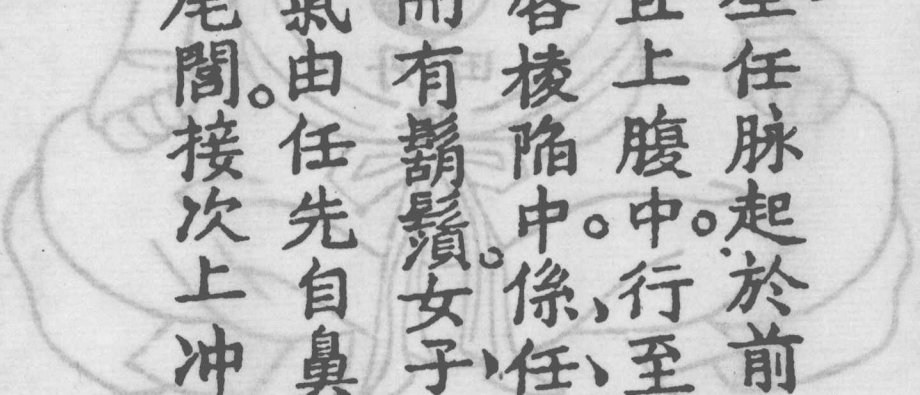 任脉起於前
上腹中。行至
棱陷中。係、任、
有鬍鬚。女子、
氣由任先自鼻
尾閭。接次上冲